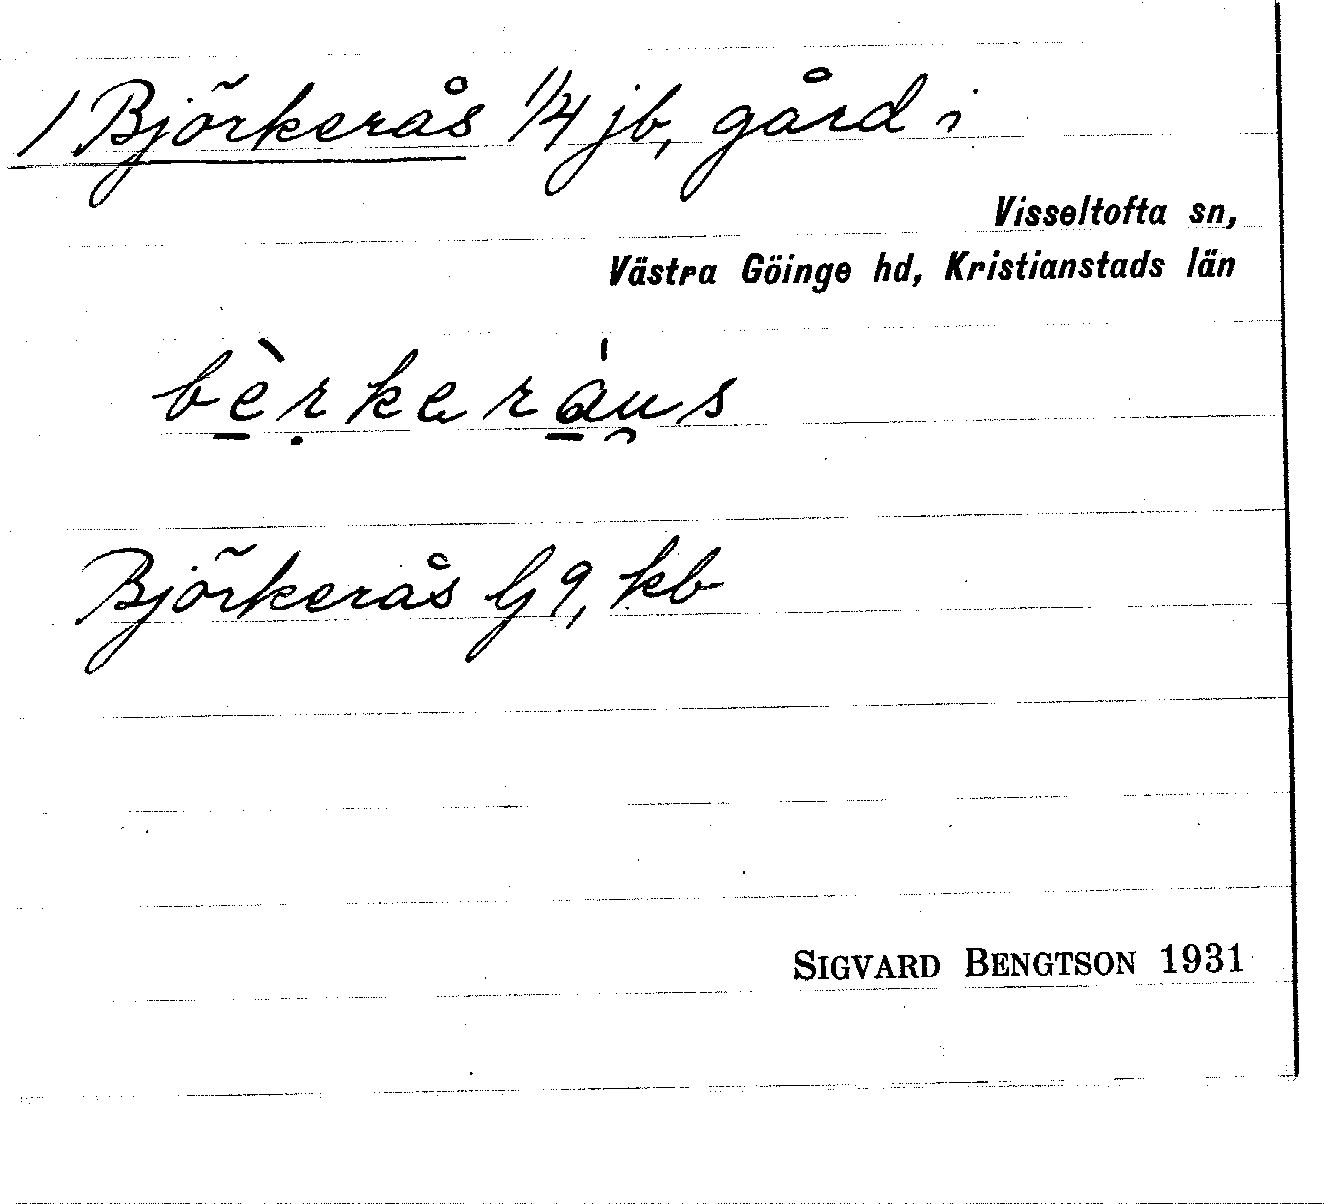 1 Björkerås 1/4 jb, gård i
Visseltofta sn,
Västra Göinge hd, Kristianstads län
bè̱ṛkerá̱u̯s
Björkerås G9, kb
SIGVARD BENGTSON 1931